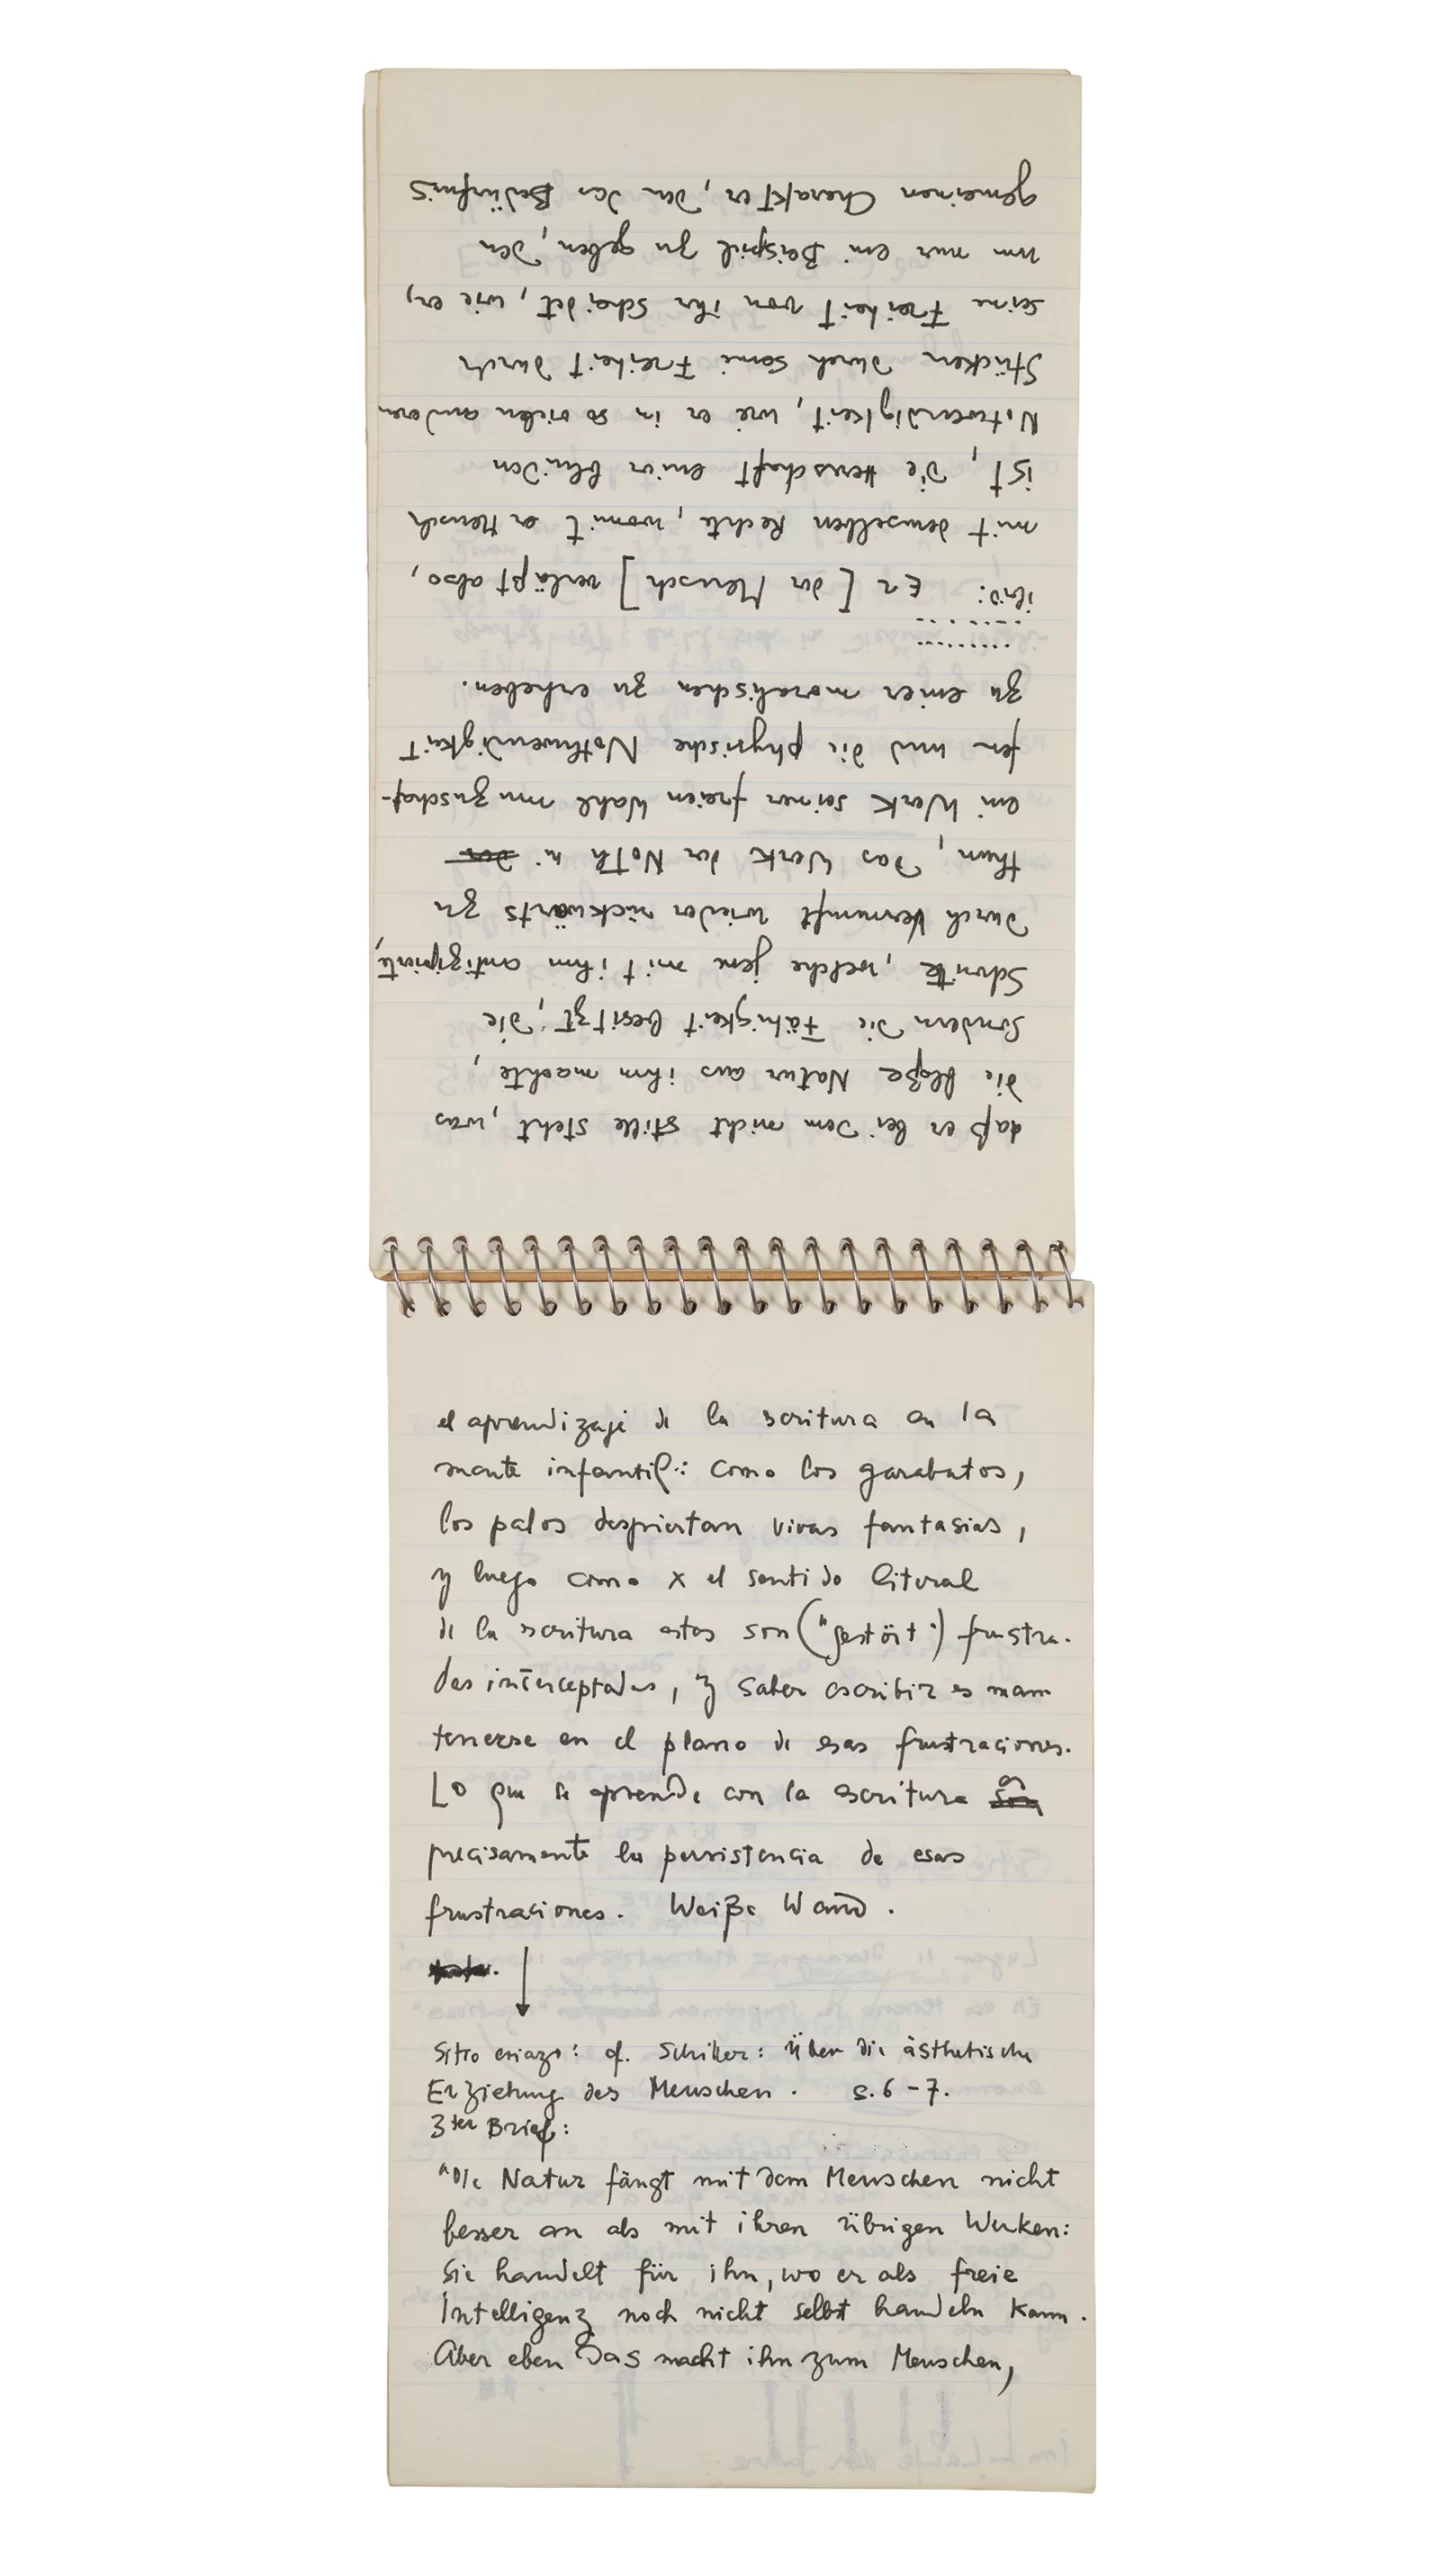 el aprendizaje de la escritura en la
mente infantil: como los garabatos,
los palos despiertan vivas fantasias,
y luego como x el sentido literal
de la escritura estas son ("gestört") frustra-
das interceptadas, y saber escribir es man
tenerse en el plano de esas frustraciones.
Lo que se aprende con la escritura
precisamente la persistencia de esas
frustraciones. Weiße Wand.
Sitio eriazo: cf. Schiller: Über die ästhetische
Erziehung des Menschen. S. 6-7.
3ter Brief:
"Die Natur fängt mit dem Menschen nicht
besser an als mit ihren übrigen Werken:
Sie handelt für ihn, wo er als freie
Intelligenz noch nicht selbst handeln kann.
Aber eben Das macht ihn zum Menschen,
daß er bei dem nicht stille steht, was
die bloße Natur aus ihm machte,
sondern die Fähigkeit besitzt, die
Schritte, welche jene mit ihm antizipirte,
durch Vernunft wieder rückwärts zu
thun, das Werk der Noth in
ein Werk seiner freien Wahl umzuschaf-
fen und die physische Nothwendigkeit
zu einer moralischen zu erheben.
ibid: Er [der Mensch] verläßt also,
mit demselben Rechte, womit er Mensch
ist, die Herrschaft einer blinden
Notwendigkeit, wie er in so vielen anderen
Stücken durch seine Freiheit durch
seine Freiheit von ihr scheidet, wie er,
um nur ein Beispiel zu geben, den
gemeinen Charakter, den das Bedürfnis